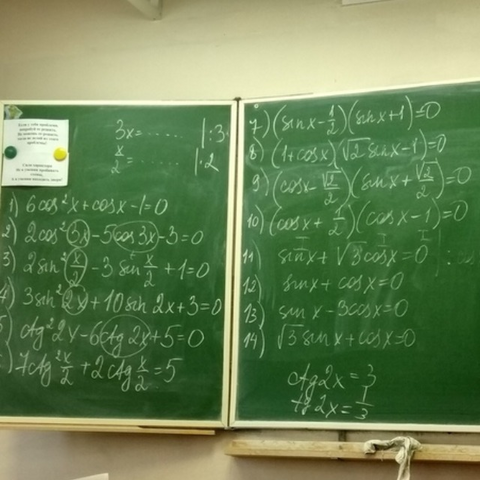 3x=...... |:3
x/2=...... |·2
1) 6cos²x+cosx-1=0
2) 2cos²3x-5cos3x-3=0
3) 2sin²x/2-3sin x/2+1=0
4) 3sin²2x+10sin2x+3=0
5) ctg²2x-6ctg2x+5=0
7ctg²x/2+2ctg x/2=5
7) (sinx-1/2)(sinx+1)=0
8) (1+cosx)(√2sinx-1)=0
9) (cosx-√2/2)(sinx+√2/2)=0
10) (cosx+1/2)(cosx-1)=0
11) sinx+√3cosx=0
12) sinx+cosx=0
13) sinx-3cosx=0
14) √3sinx+cosx=0
ctg2x=3
tg2x=1/3